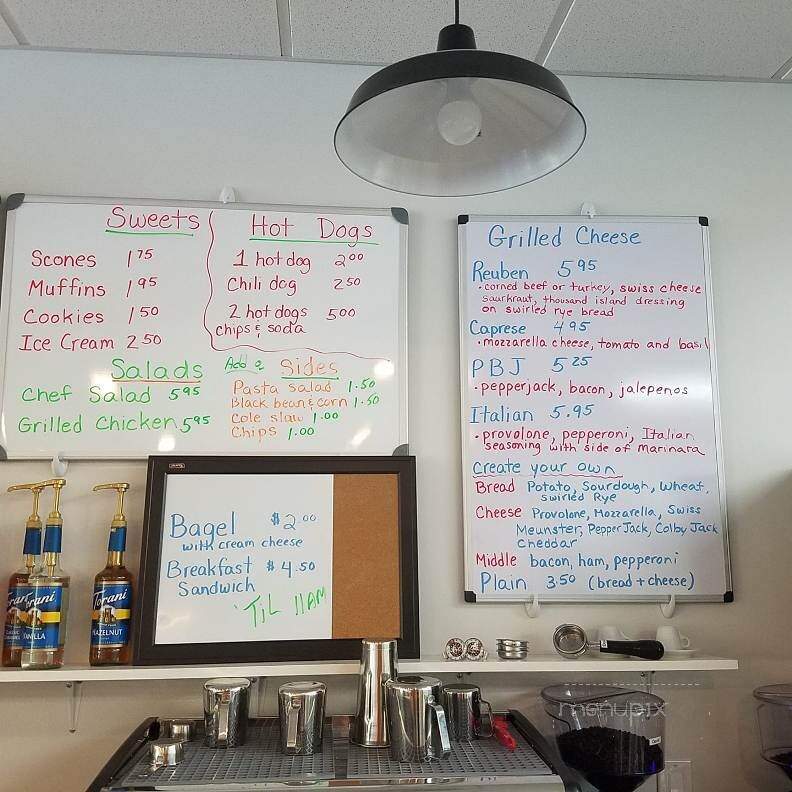 Sweets
Scones 1 75
Muffins 1 95
Cookies 1 50
Ice Cream 2 50
Hot Dogs
1 hot dog 2 00
Chili dog 2 50
2 hot dogs 5 00
chips & soda
Salads
Chef Salad 5 95
Grilled Chicken 5 95
Add a Sides
Pasta salad 1.50
Black bean & corn 1.50
Cole slaw 1.00
Chips 1.00
Grilled Cheese
Reuben 5 95
• corned beef or turkey, swiss cheese
saurkraut, thousand island dressing
on swirled rye bread
Caprese 4 95
• mozzarella cheese, tomato and basil
PBJ 5 25
• pepperjack, bacon, jalepenos
Italian 5.95
• provolone, pepperoni, Italian
seasoning with side of marinara
Create your own
Bread Potato, Sourdough, Wheat,
swirled Rye
Cheese Provolone, Mozzarella, Swiss
Meunster, Pepper Jack, Colby Jack
Cheddar
Middle bacon, ham, pepperoni
Plain 3.50 (bread + cheese)
Bagel $2 00
with cream cheese
Breakfast $4.50
Sandwich
'TiL 11AM
Torani
VANILLA
Torani
HAZELNUT
menupix